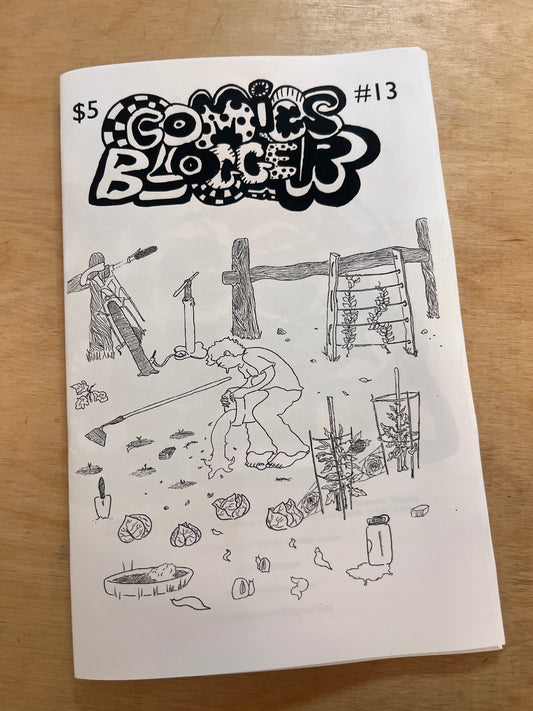 $5
#13
COMICS
BLOGGER